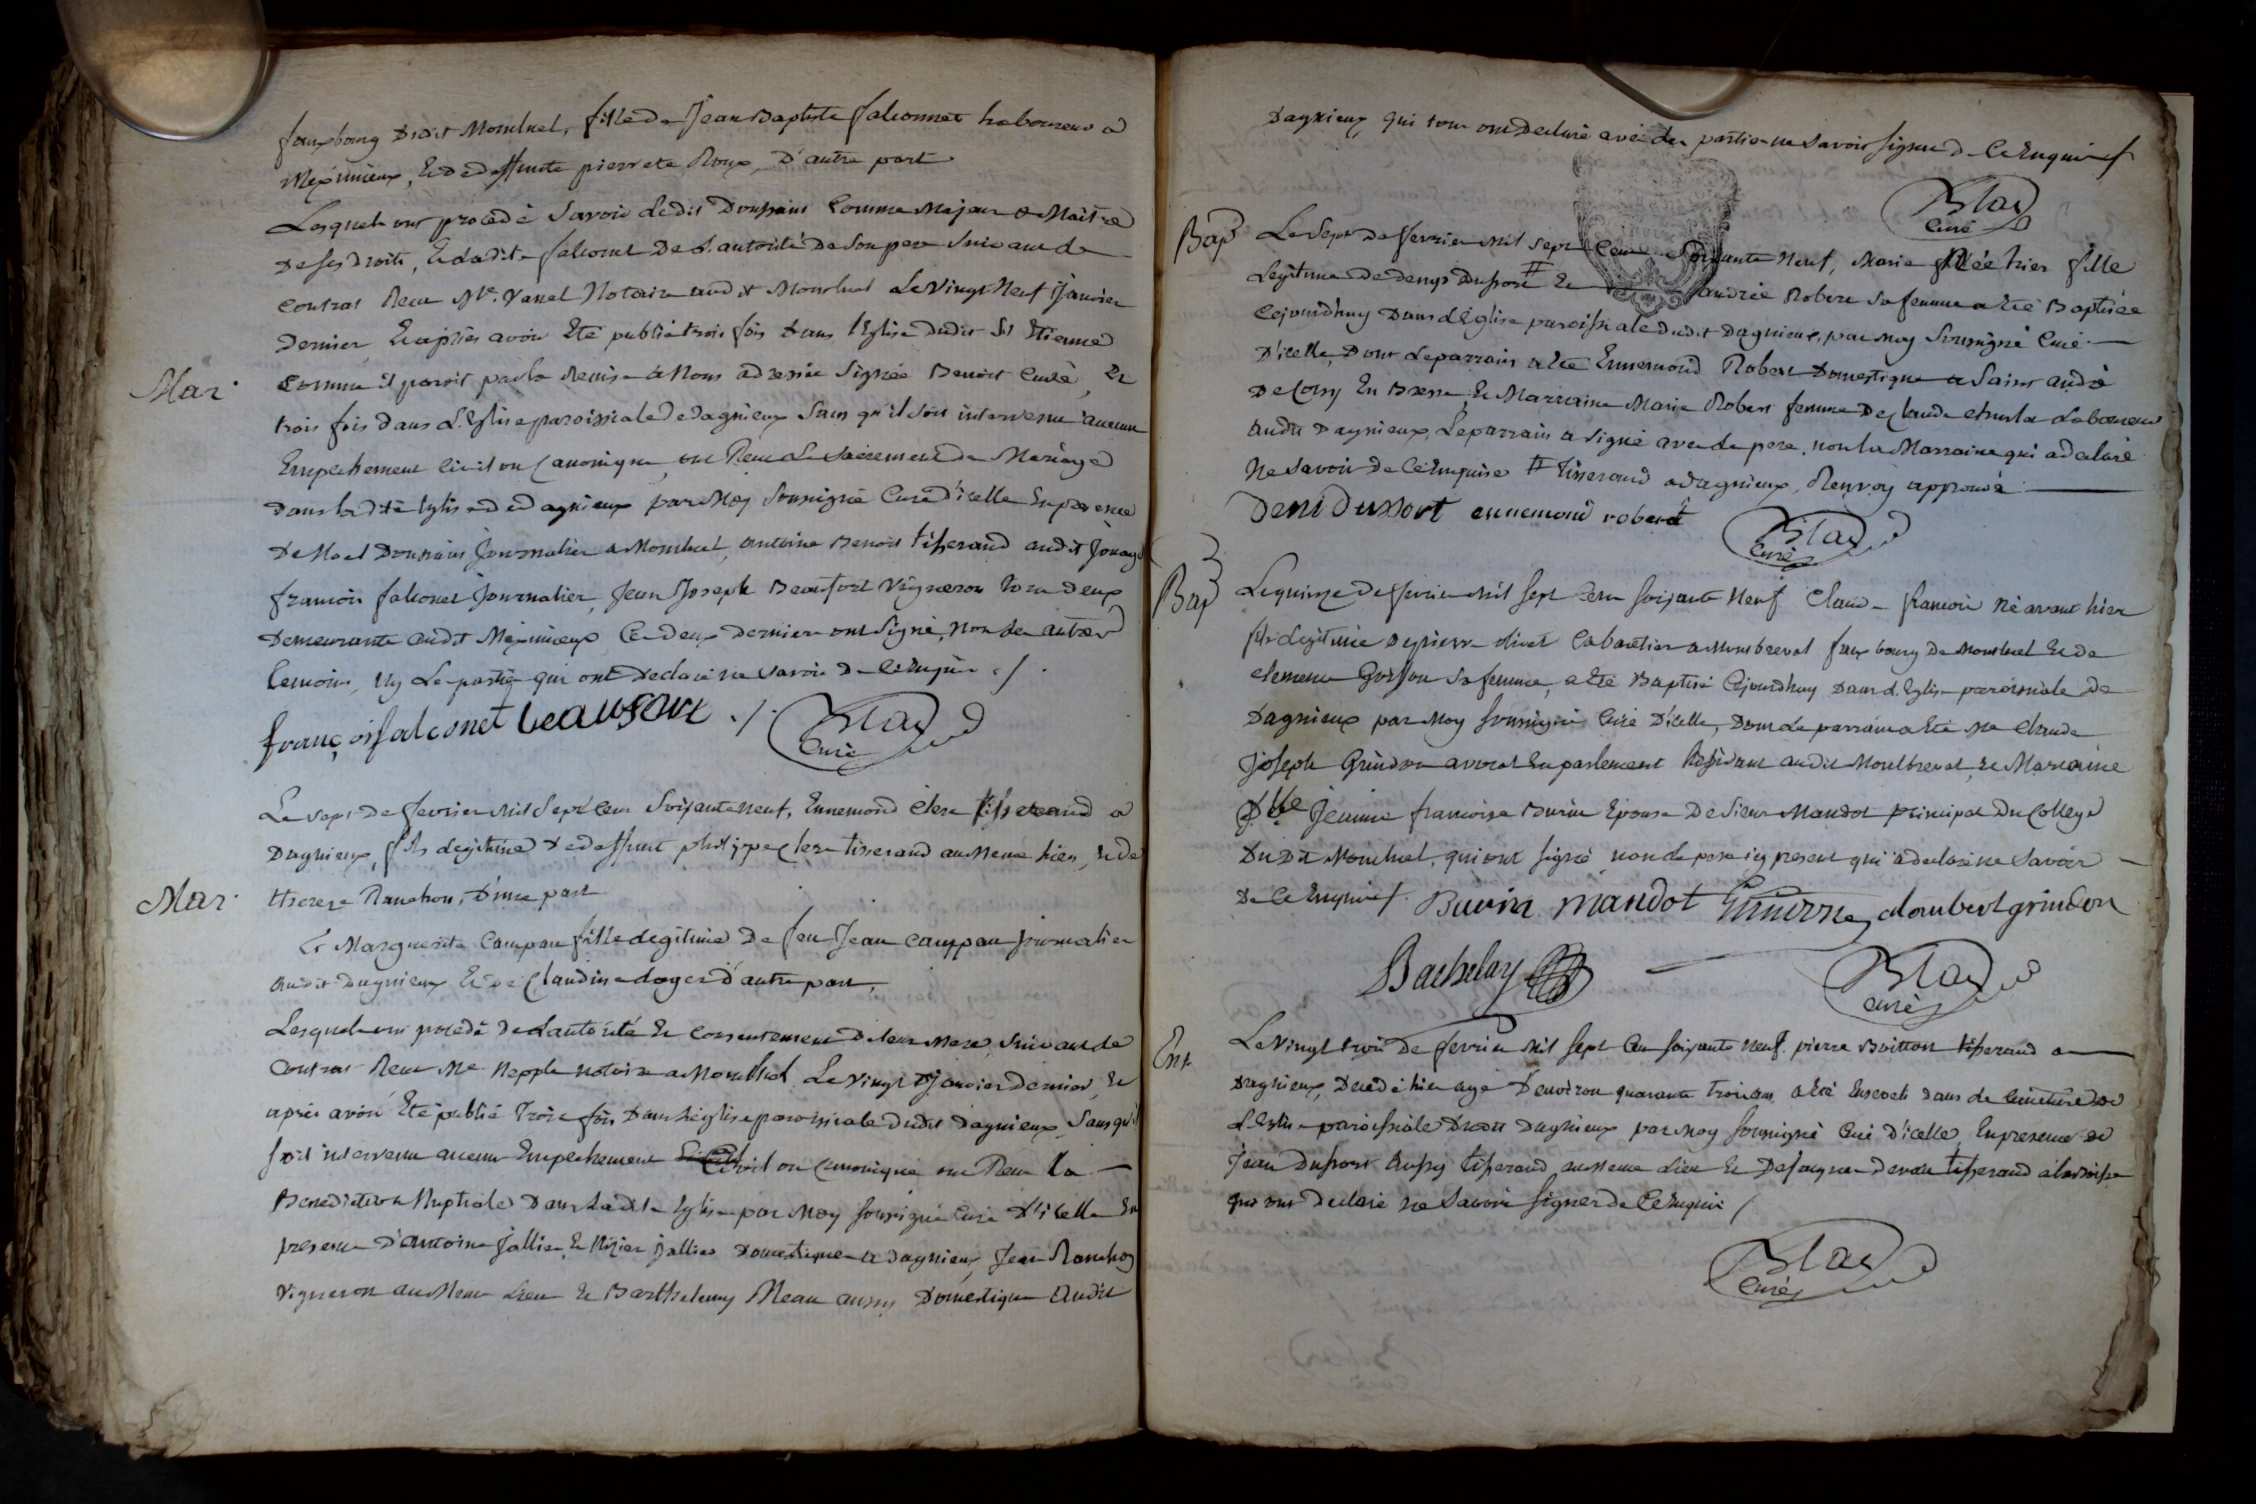 fauxbourg Dudit Montluel, fille De Jean Baptiste falconnet laboureur a
Meximieux, Et De deffunte pierrete Roux, D'autre part
Lesquels ont procedé Savoir Ledit Doussains Comme Majeur & Maitre
De ses Droits, Et Ladite falconet De L'autorité De Son pere Suivant Le
Contrat Recu Me. Vanel Notaire audit Montluel Le Vingt Neuf Janvier
Dernier Et après avoir Eté publié trois fois Dans l'Eglise Dudit St Etienne
Mar. Comme il paroit par la Remise à Nous adressée Signée Benoit Curé, Et
trois fois dans L'Eglise paroissiale De dagnieux Sans qu'il Soit intervenu aucun
Empechement Civil ou Canonique, ont Recu Le Sacrement De Mariage
Dans ladite Eglise de dagnieux par Moy Soussigné Curé D'icelle En presence
De Noel Doussains Journalier a Montluel, antoine Benoit tisserand audit
francois falconet Journalier, Jean Joseph Beaufort Vigneron tous deux
Demeurants audit Meximieux Ces deux Derniers ont Signé, Non les autres
temoins, Ny Les parties qui ont Declaré ne Savoir De Ce Enquis ./.
françois falconet beaufort ./. Blad Curé
Le Sept De fevrier Mil Sept Cent Soixante Neuf, Ennemond Clere tisserand a
Dagnieux, fils Legitime De deffunt philippe Clere tisserand au Meme Lieu, Et De
Mar. therese Ranchon, D'une part
Et Marguerite Campan fille Legitime De feu Jean Camppan journalier
audit Dagnieux Et De Claudine doger d'autre part,
Lesquels ont procédé De L'autorité Et Consentement De leur Mere, Suivant Le
Contrat Recu Me Nepple notoire a Montluel Le Vingt Janvier Dernier, Et
après avoir Eté publié trois fois Dans L'église paroissiale Dudit Dagnieux, Sans qu'il
Soit intervenu aucun Empechement Civil ou Canonique ont Recu la
Benediction Nuptiale Dans Ladite Eglise par Moy Soussigné Curé D'icelle En
presence D'antoine Jallier, Et Nizier Jallier Domestiques a Dagnieux, Jean Ranchon
Vigneron au Meme Lieu Et Barthelemy Neau aussy Domestique Audit
Dagnieux, qui tous ont Declaré avec les parties ne Savoir Signer De Ce Enquis ./.
Blad Curé
Bap Le Sept De fevrier Mil Sept Cent Soixante Neuf, Marie Née hier fille
Legitime De Denys Dussort # Et andrée Robert Sa femme a Eté Baptisée
Cejourdhuy Dans L'Eglise paroissiale Dudit Dagnieux, par Moy Soussigné Curé
D'icelle, Dont Le parrain a Eté Ennemond Robert Domestique a Saint andré
De Corcy En Bresse, Et Marraine Marie Robert femme De Claude Laboureur
audit Dagnieux, Le parrain a Signé avec Le pere, non La Marraine qui a declaré
Ne Savoir De Ce Enquise # tisserand a dagnieux, Renvoy approuvé
Deni Dussort ennemond robert Blad Curé
Bap Le quinze De fevrier Mil Sept Cent Soixante Neuf Claude francois Né avant hier
fils Legitime De pierre olivet Cabaretier a Montbreval fauxbourg De Montluel Et De
Clemence Sa femme, a Eté Baptisé Cejourdhuy Dans L'Eglise paroissiale De
Dagnieux par Moy Soussigné Curé D'icelle, Dont Le parrain a Eté Me Claude
Joseph Grindon avocat En parlement Residant audit Montbreval, Et Marraine
Dlle Jeanne francoise Burin Epouse De Sieur Mandot principal Du College
Du Dit Montluel, qui ont Signé non Le pere icy present qui a declaré ne Savoir
De Ce Enquis ./. Buvin mandot alombert grindon
Bachelay Blad curé
Ent. Le Vingt trois De fevrier Mil Sept Cent Soixante Neuf. pierre Boitton tisserand a
Dagnieux, Decedé hier agé D'environ quarante trois ans, a Eté Enseveli Dans Le Cimetiere De
L'Eglise paroissiale Dudit Dagnieux par Moy Soussigné Curé D'icelle, En presence De
Jean Dussort Aussy tisserand au Meme Lieu Et De devau tisserand a la
qui ont Declaré ne Savoir Signer De Ce Enquis /
Blad Curé